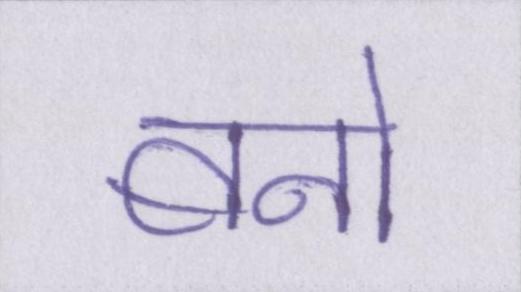 बनो